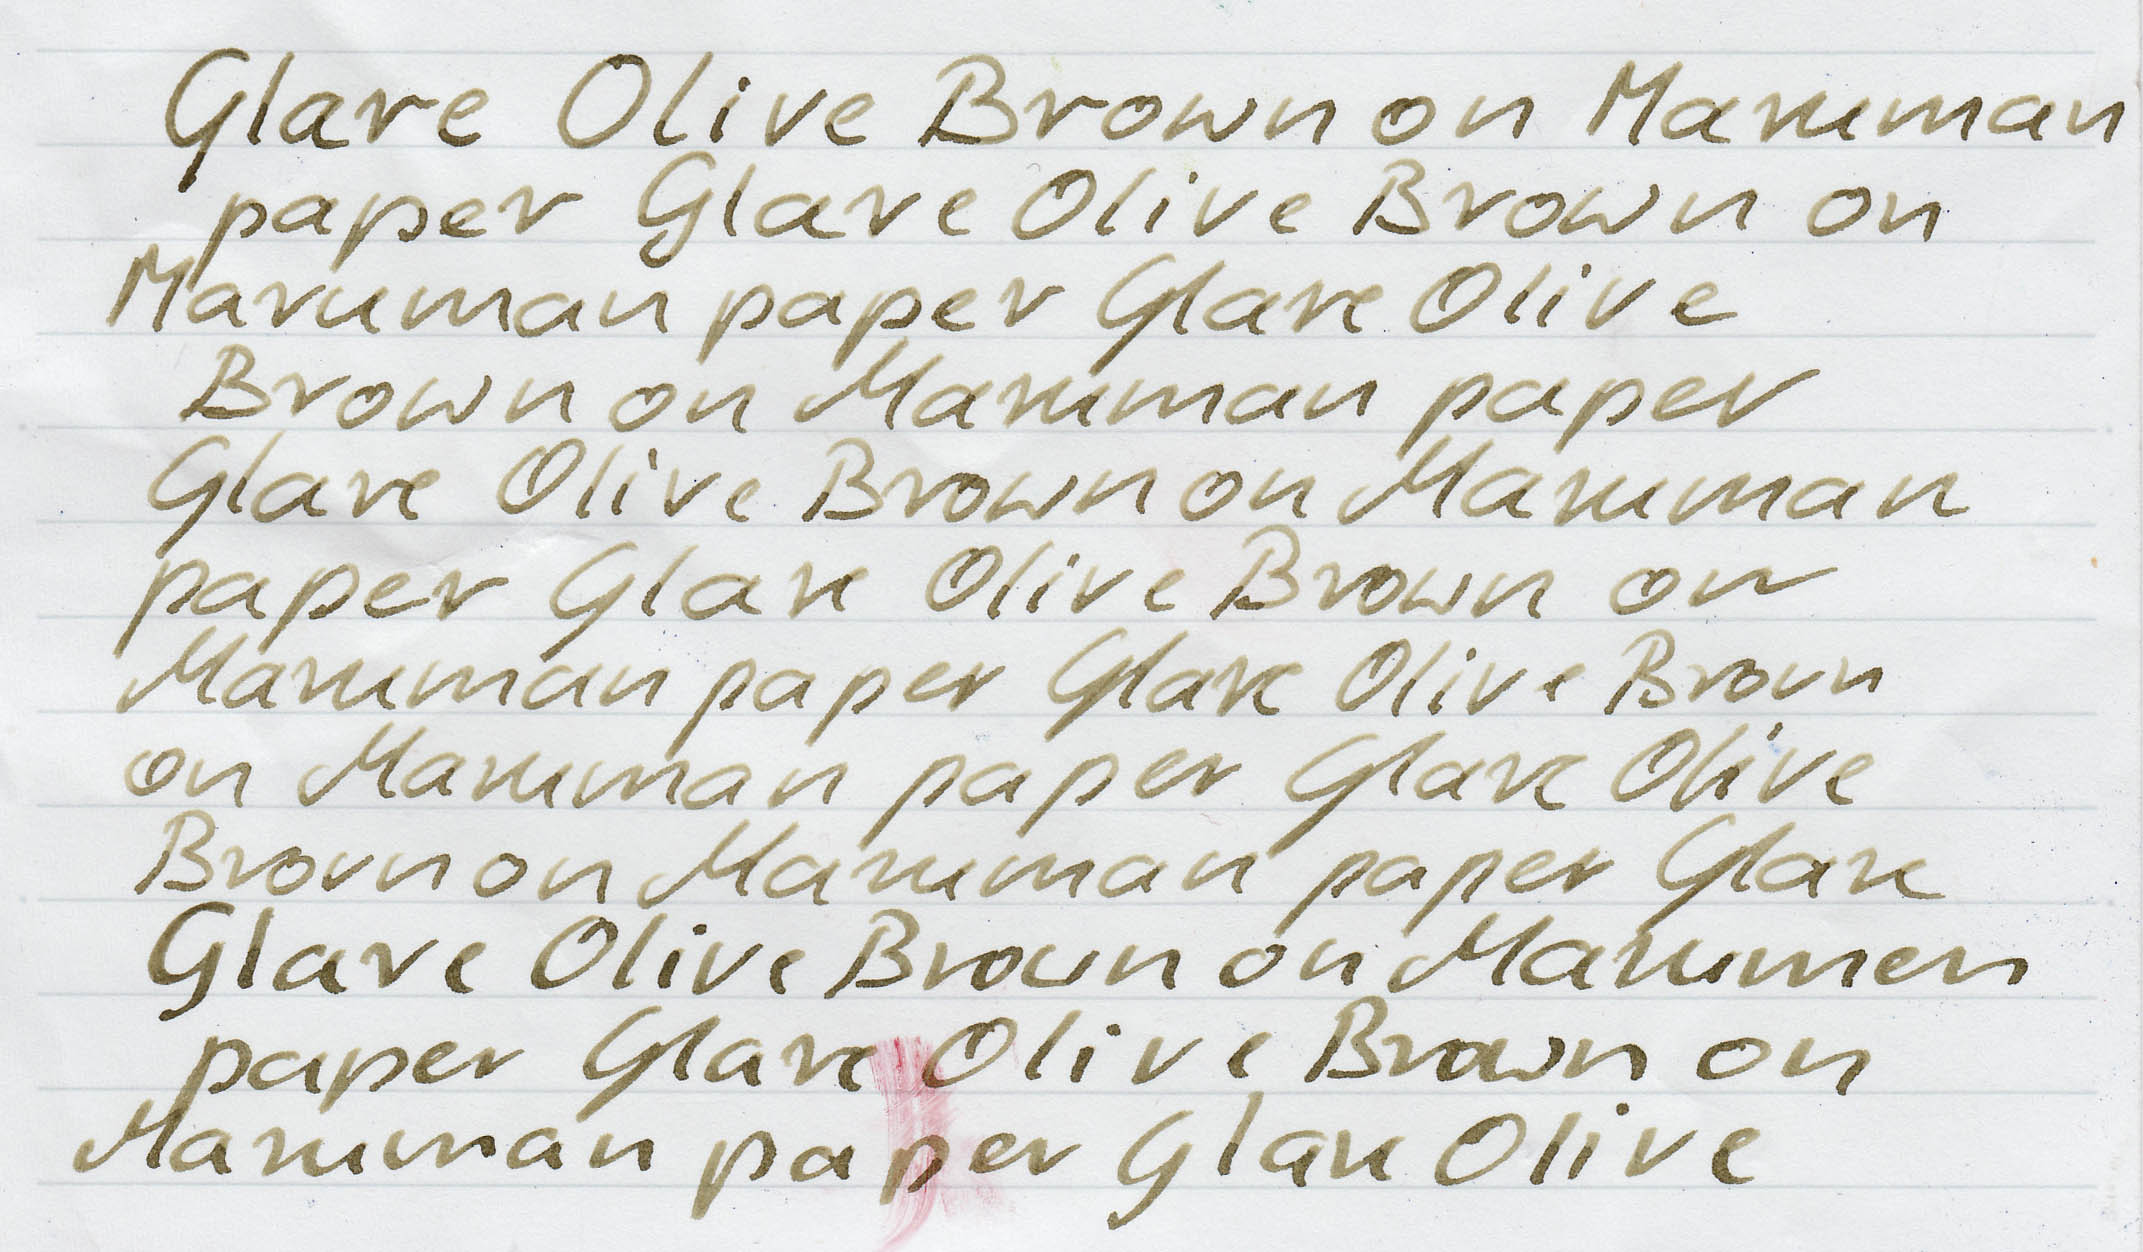 Glare Olive Brown on Maruman
paper Glare Olive Brown on
Maruman paper Glare Olive
Brown on Maruman paper
Glare Olive Brown on Maruman
paper Glare Olive Brown on
Maruman paper Glare Olive Brown
on Maruman paper Glare Olive
Brown on Maruman paper Glare
Glare Olive Brown on Marumen
paper Glare Olive Brown on
Maruman paper Glare Olive